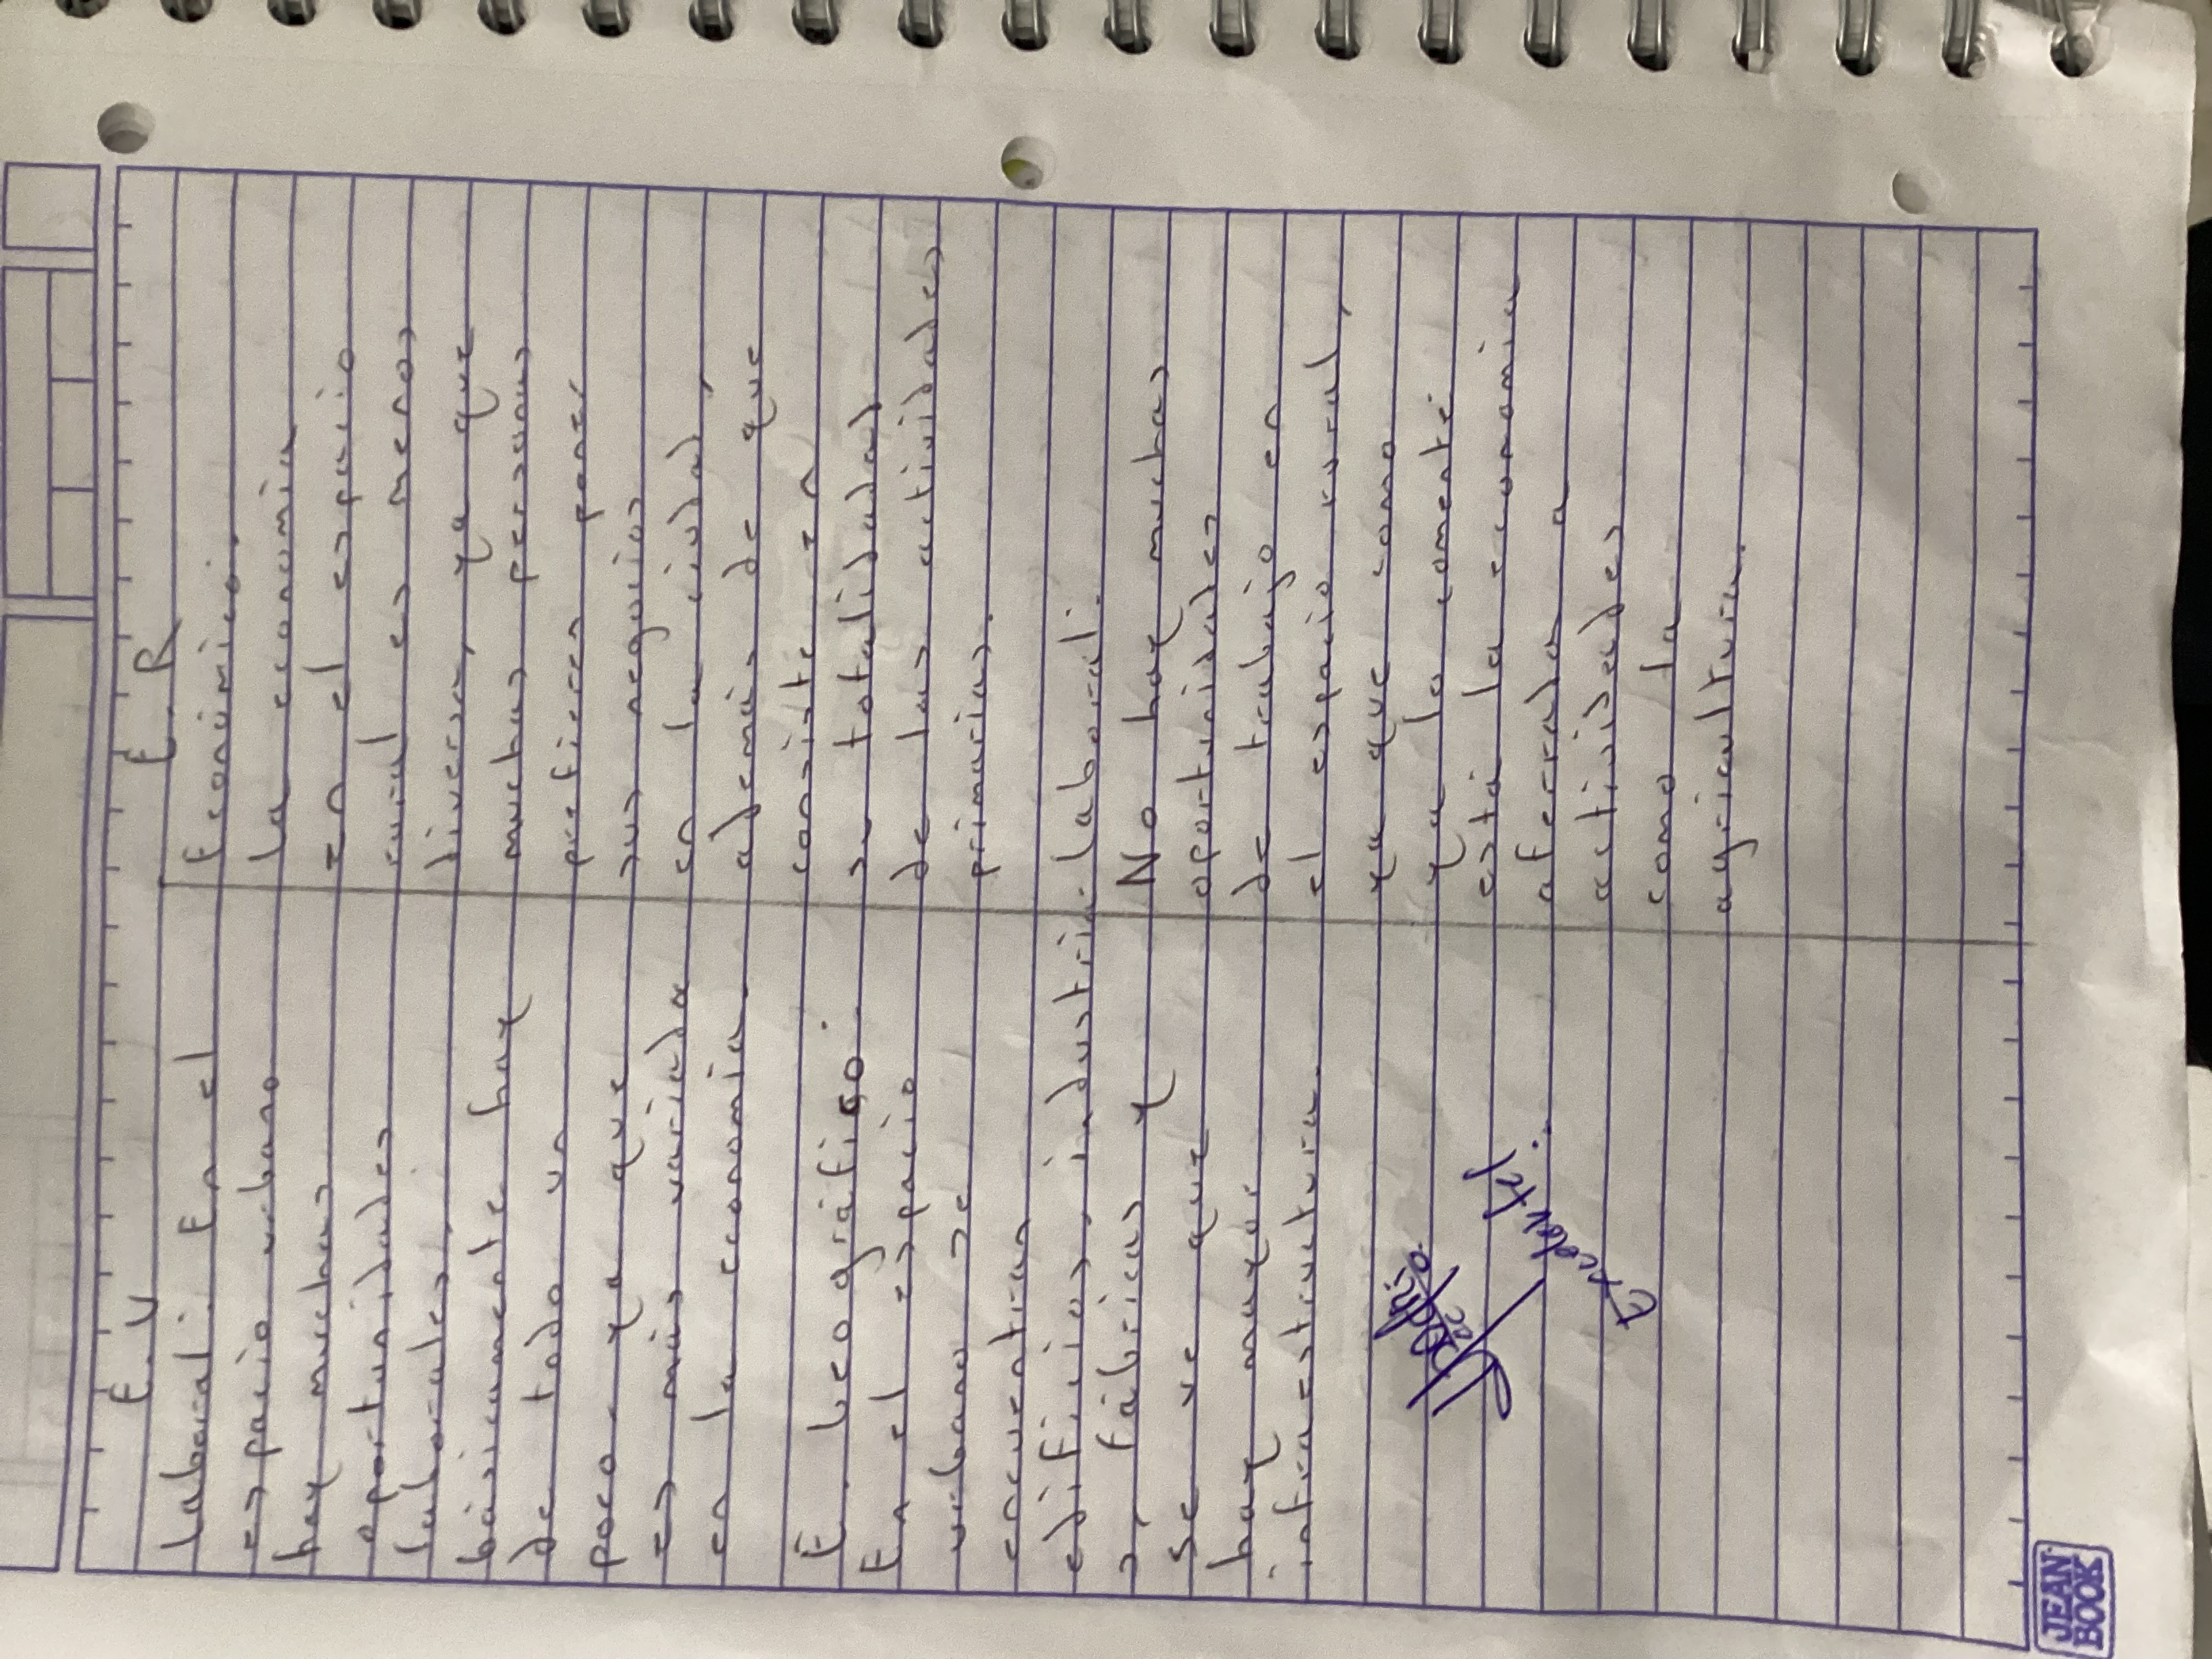 E.U
laboral. En el
espacio urbano
hay muchas
oportunidades
laborales,
básicamente hay
de todo un
poco, ya que
es más variada
en la economía.
E. Geográfico.
En el espacio
urbano se
encuentran
edificios, industria
s, fábricas y
se ve que
hay mayor
infraestructura.
E.R
Económico.
la economía
en el espacio
rural es menos
diversa, ya que
muchas personas
prefieren poner
sus negocios
en la ciudad,
además de que
consiste en
su totalidad
de las actividades
primarias.
laboral.
No hay muchas
oportunidades
de trabajo en
el espacio rural,
ya que como
ya lo comenté:
está la economía
afectada a
actividades
como la
agricultura.
Excelente!!
JEAN
BOOK